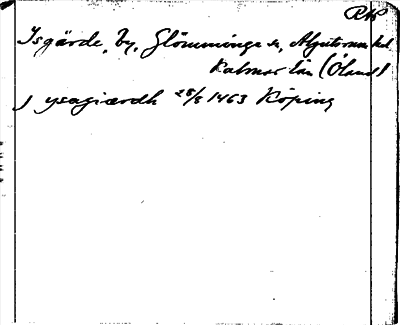 RAP
Isgärde, by, Glömminge sn, Algutsrums hd
Kalmar län (Öland)
J ysagiærdh 28/8 1463 Köping